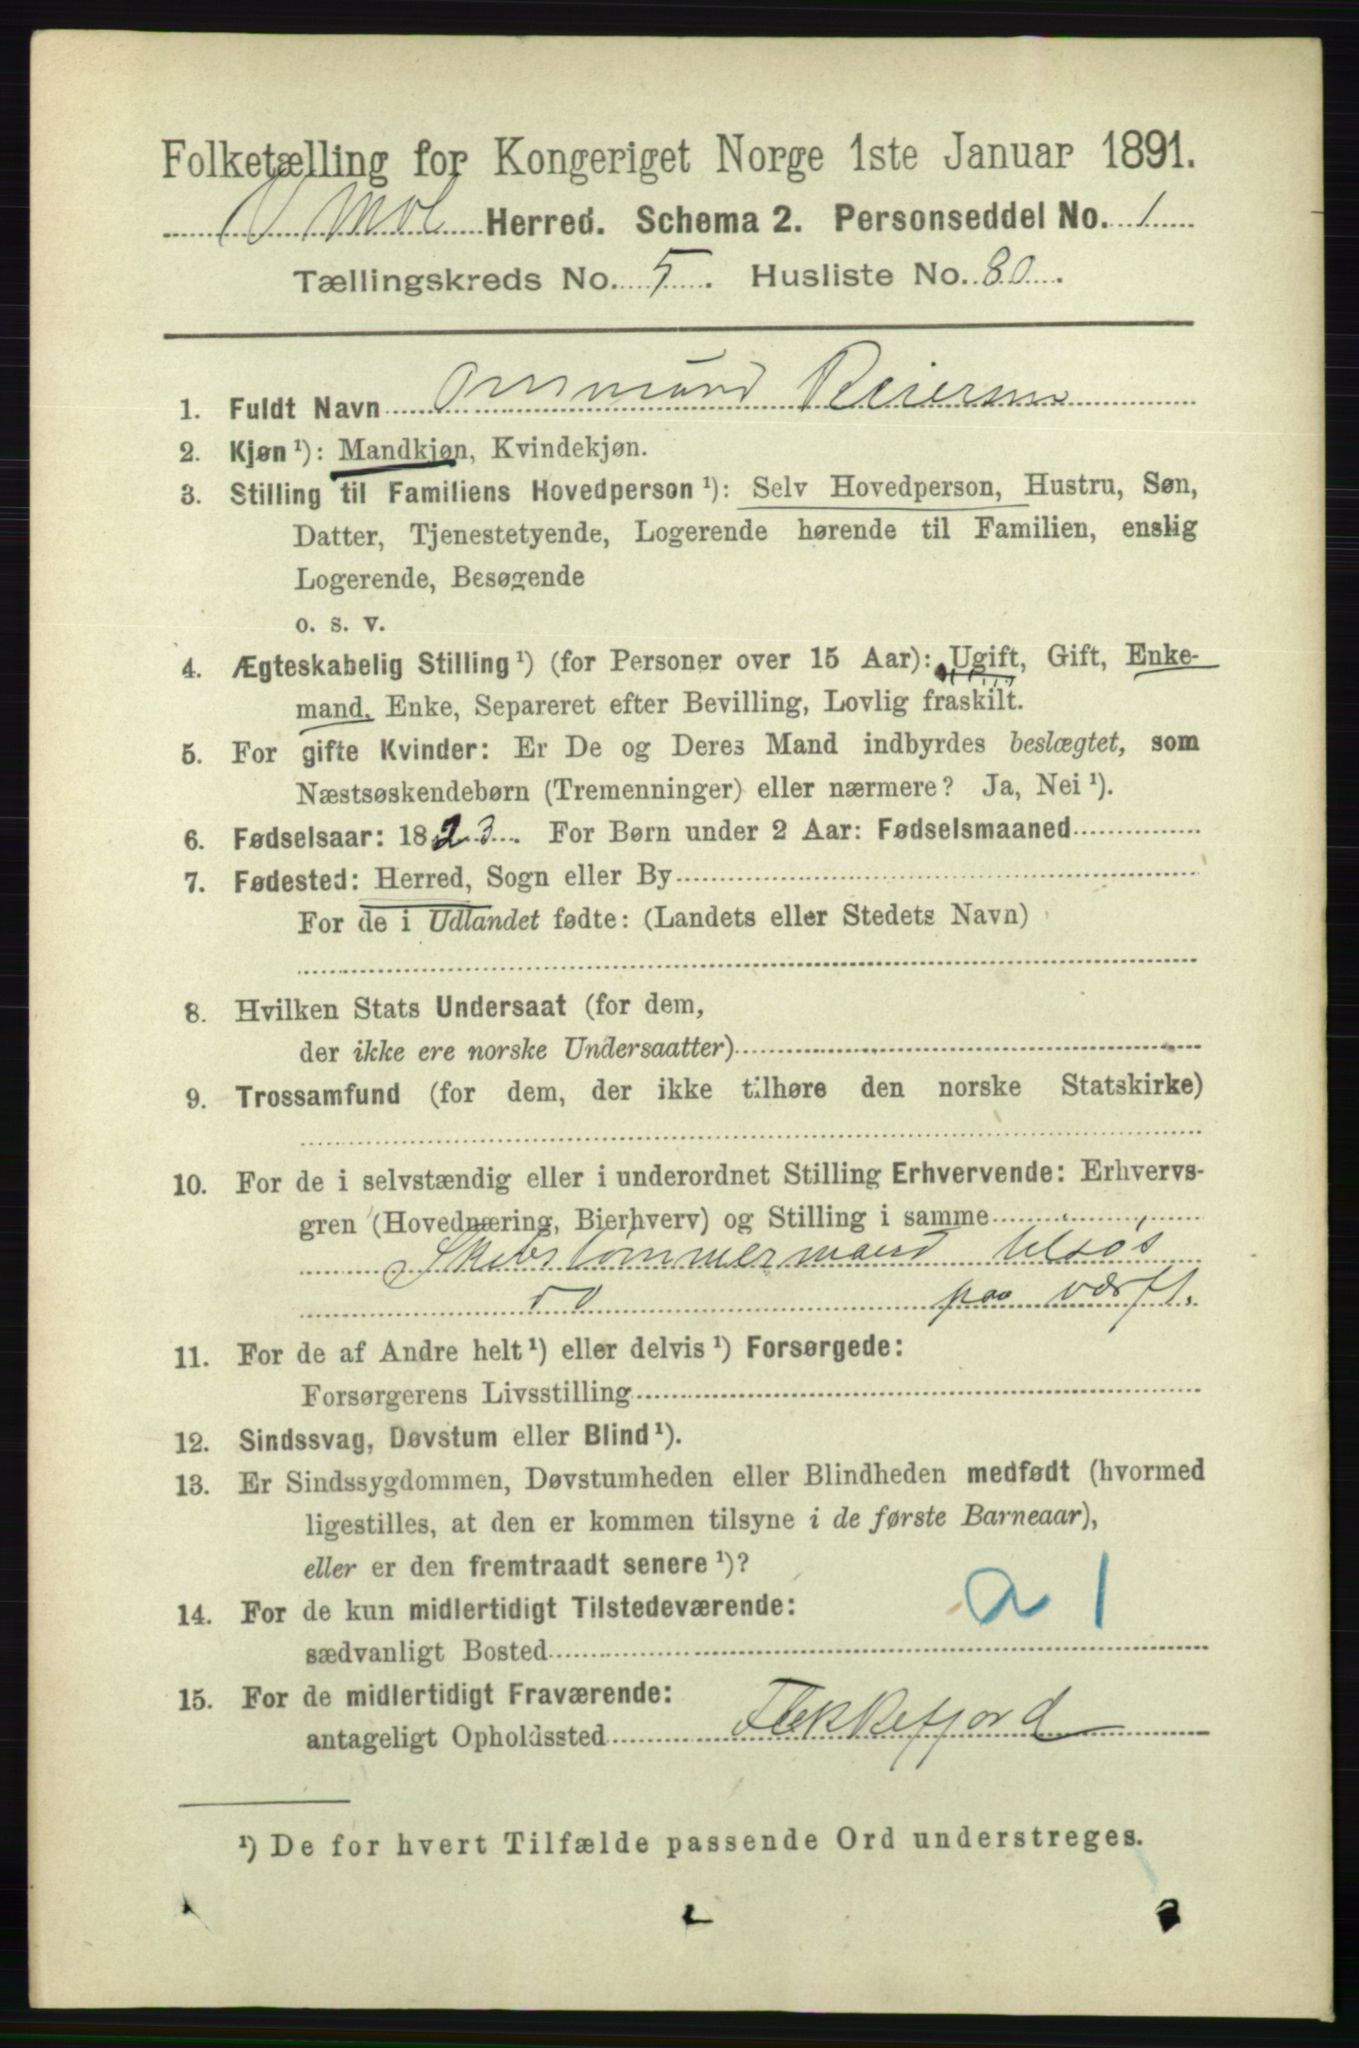 Folketælling for Kongeriget Norge 1ste Januar 1891.
Herred. Schema 2. Personseddel No. 1
Tællingskreds No. 5. Husliste No. 80.
1. Fuldt Navn Ommund Reiersen
2. Kjøn ¹): Mandkjøn, Kvindekjøn.
3. Stilling til Familiens Hovedperson ¹): Selv Hovedperson, Hustru, Søn,
Datter, Tjenestetyende, Logerende hørende til Familien, enslig
Logerende, Besøgende
o. s. v.
4. Ægteskabelig Stilling ¹) (for Personer over 15 Aar): Ugift, Gift, Enke-
mand, Enke, Separeret efter Bevilling, Lovlig fraskilt.
5. For gifte Kvinder: Er De og Deres Mand indbyrdes beslægtet, som
Næstsøskendebørn (Tremenninger) eller nærmere? Ja, Nei ¹).
6. Fødselsaar: 1823. For Børn under 2 Aar: Fødselsmaaned
7. Fødested: Herred, Sogn eller By
For de i Udlandet fødte: (Landets eller Stedets Navn)
8. Hvilken Stats Undersaat (for dem,
der ikke ere norske Undersaatter)
9. Trossamfund (for dem, der ikke tilhøre den norske Statskirke)
10. For de i selvstændig eller i underordnet Stilling Erhvervende: Erhvervs-
gren (Hovednæring, Bierhverv) og Stilling i samme
Skibstømmermand tilsøs
do paa værft.
11. For de af Andre helt ¹) eller delvis ¹) Forsørgede:
Forsørgerens Livsstilling
12. Sindssvag, Døvstum eller Blind ¹).
13. Er Sindssygdommen, Døvstumheden eller Blindheden medfødt (hvormed
ligestilles, at den er kommen tilsyne i de første Barneaar),
eller er den fremtraadt senere ¹)?
a 1
14. For de kun midlertidigt Tilstedeværende:
sædvanligt Bosted
15. For de midlertidigt Fraværende:
antageligt Opholdssted Flekkefjord
¹) De for hvert Tilfælde passende Ord understreges.